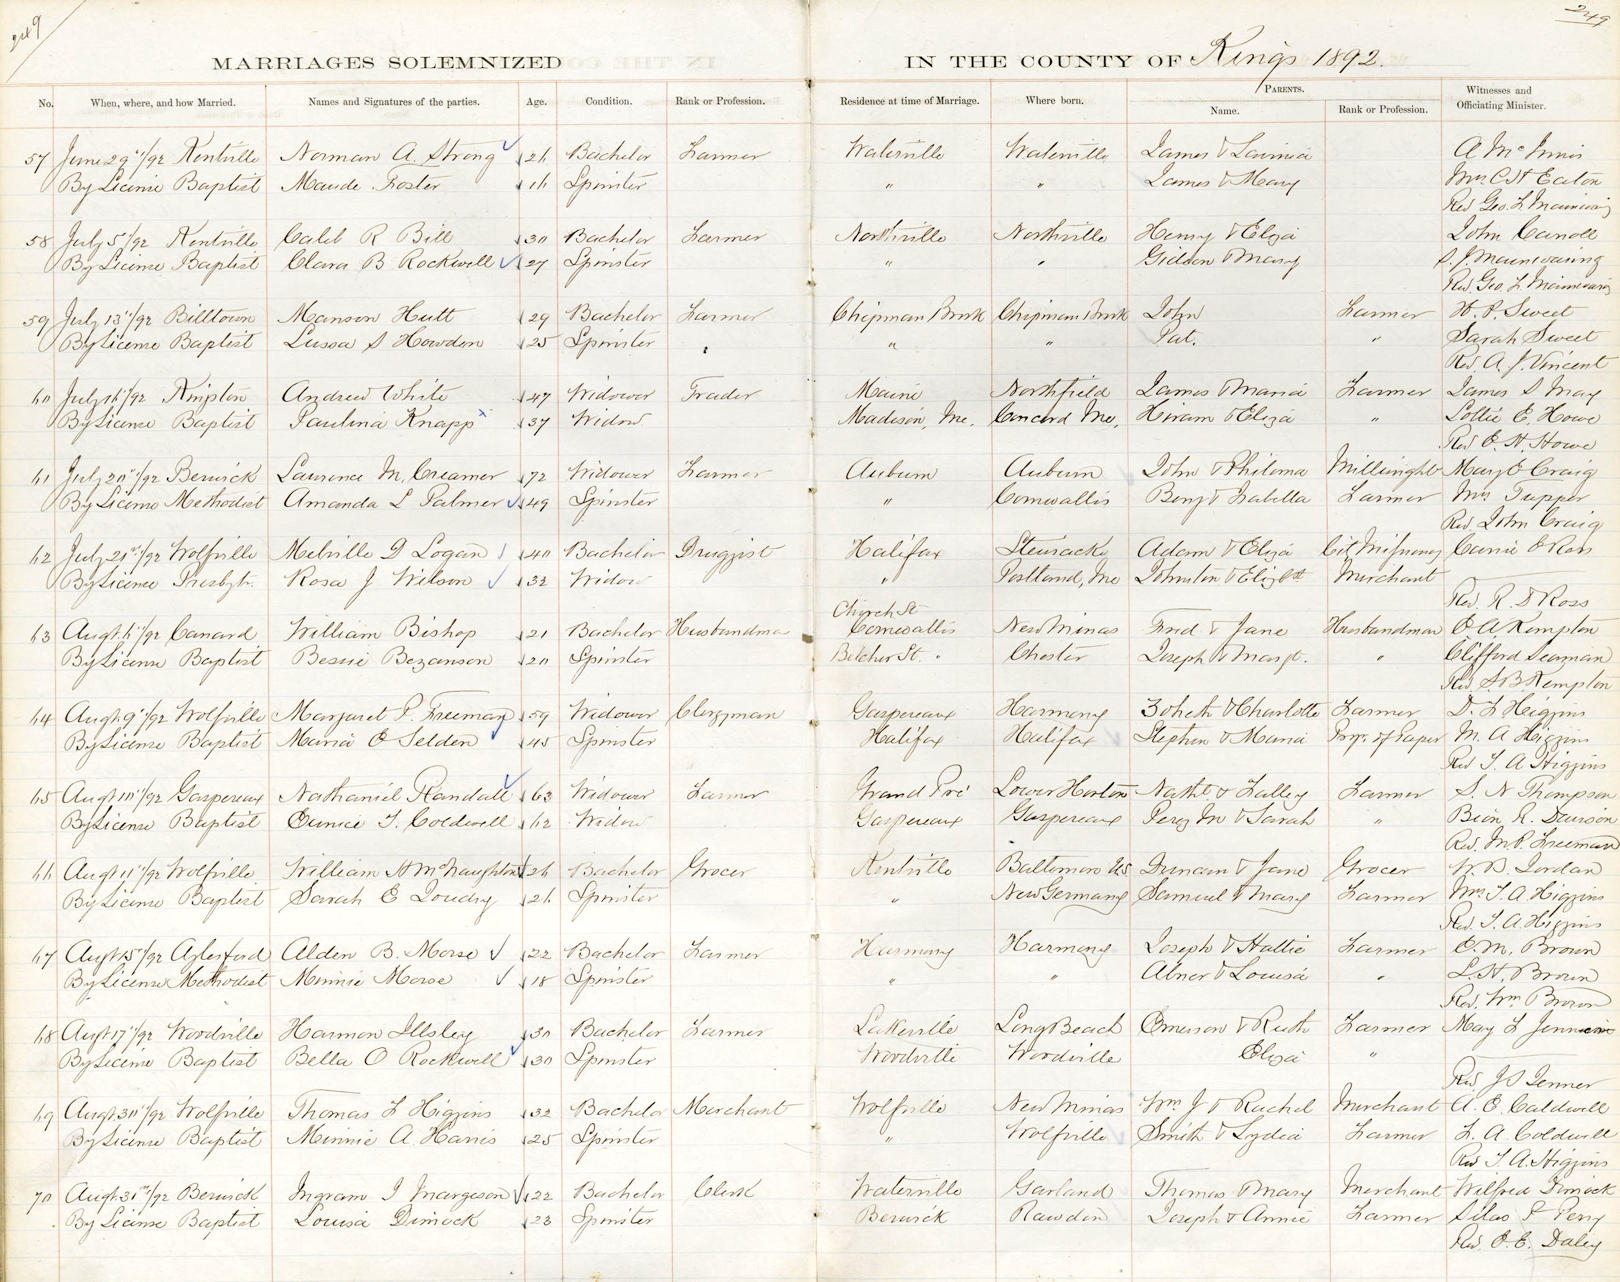 249
249
MARRIAGES SOLEMNIZED IN THE COUNTY OF Kings 1892.
No. When, where, and how Married. Names and Signatures of the parties. Age. Condition. Rank or Profession. Residence at time of Marriage. Where born. PARENTS. Name. Rank or Profession. Witnesses and Officiating Minister.
57 June 29"/92 Kentville Norman A. Strong 26 Bachelor Farmer Waterville Waterville James & Lavinia A McInnis
By License Baptist Maude Foster 16 Spinster " " James & Mary Mrs C H Eaton
Rev Geo. L Mainwaring
58 July 5"/92 Kentville Caleb R Bill 30 Bachelor Farmer Northville Northville Henry & Eliza John Carroll
By License Baptist Clara B Rockwell 27 Spinster " " Gideon & Mary S. J. Mainwaring
Rev Geo. L Mainwaring
59 July 13"/92 Billtown Manson Hutt 29 Bachelor Farmer Chipman Brook Chipman Brook John Farmer H. P. Sweet
By License Baptist S Howden 25 Spinster " " Pat. " Sarah Sweet
Rev A. J. Vincent
60 July 16"/92 Andrew White 47 Widower Trader Maine Northfield James & Maria Farmer James S May
By License Baptist Paulina Knapp 37 Widow Madison, Me. Concord Me, Hiram & Eliza " Lottie E. Howe
Rev O. N. Howe
61 July 20"/92 Berwick Laurence M. Creamer 72 Widower Farmer Auburn Auburn John & Philema Millwright Mary E Craig
By License Methodist Amanda L Palmer 49 Spinster " Cornwallis Benj & Isabella Farmer Mrs Tupper
Rev John Craig
62 July 21st/92 Wolfville Melville D Logan 40 Bachelor Druggist Halifax Stewiacke Adam & Eliza Carrie E Ross
By License Presbytr. Rosa J Wilson 32 Widow " Portland, Me Johnston & Elizbth Merchant
Rev. R. D Ross
63 Augt. 6"/92 Canard William Bishop 21 Bachelor Husbandman Church St Cornwallis New Minas Fred & Jane Husbandman O A Kempton
By License Baptist Bessie Bezanson 20 Spinster Belcher St. " Chester Joseph & Margt. " Clifford Seaman
Rev. S. B. Kempton
64 Augt. 9"/92 Wolfville Margaret P. Freeman 59 Widower Clergyman Gaspereaux Harmony Zoheth & Charlotte Farmer D. F Higgins
By License Baptist Maria E Selden 45 Spinster Halifax Halifax Stephen & Maria Propr. of Paper M. A Higgins
Rev T. A Higgins
65 Augt 10"/92 Gaspereau Nathaniel Randall 63 Widower Farmer Grand Pré Lower Horton Nathl & Farmer S. N Thompson
By License Baptist Eunice T. Coldwell 62 Widow Gaspereaux Gaspereaux Perez M & Sarah " R. Davison
Rev. M. P. Freeman
66 Augt 11"/92 Wolfville William H McNaughton 26 Bachelor Grocer Kentville Baltimore US Duncan & Jane Grocer W. D. Jordan
By License Baptist Sarah E 26 Spinster " New Germany Samuel & Mary Farmer Mrs. T. A. Higgins
Rev. T. A. Higgins
67 Augt 15"/92 Aylesford Alden B. Morse 22 Bachelor Farmer Harmony Harmony Joseph & Hattie Farmer E. M. Brown
By License Methodist Minnie Morse 18 Spinster " " Abner & Louisa " L. H. Brown
Rev. Wm Brown
68 Augt 17"/92 Woodville Harmon Illsley 30 Bachelor Farmer Lakeville Long Beach Emerson & Ruth Farmer May L
By License Baptist Bella O Rockwell 30 Spinster Woodville Woodville Eliza "
Rev. J S Jenner
69 Augt 30"/92 Wolfville Thomas L Higgins 32 Bachelor Merchant Wolfville New Minas Wm. J & Rachel Merchant A. E. Caldwell
By License Baptist Minnie A. Harris 25 Spinster " Wolfville Smith & Lydia Farmer L. A. Coldwell
Rev T. A. Higgins
70 Augt 31st/92 Berwick Ingram I Margeson 22 Bachelor Clerk Waterville Garland Thomas & Mary Merchant Wilfred Dimock
By License Baptist Louisa Dimock 23 Spinster Berwick Rawdon Joseph & Annie Farmer Silas P Perry
Rev. O. E. Daley